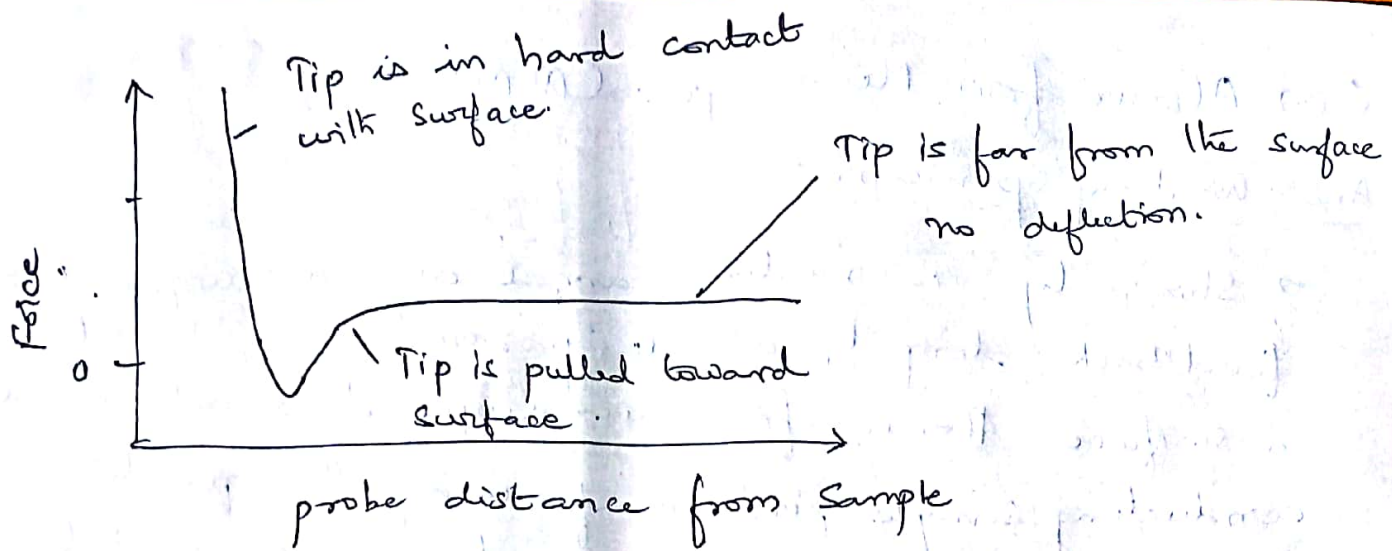 Tip is in hard contact
with surface.
Tip is far from the surface
no deflection.
Force
0
Tip is pulled toward
surface.
probe distance from sample